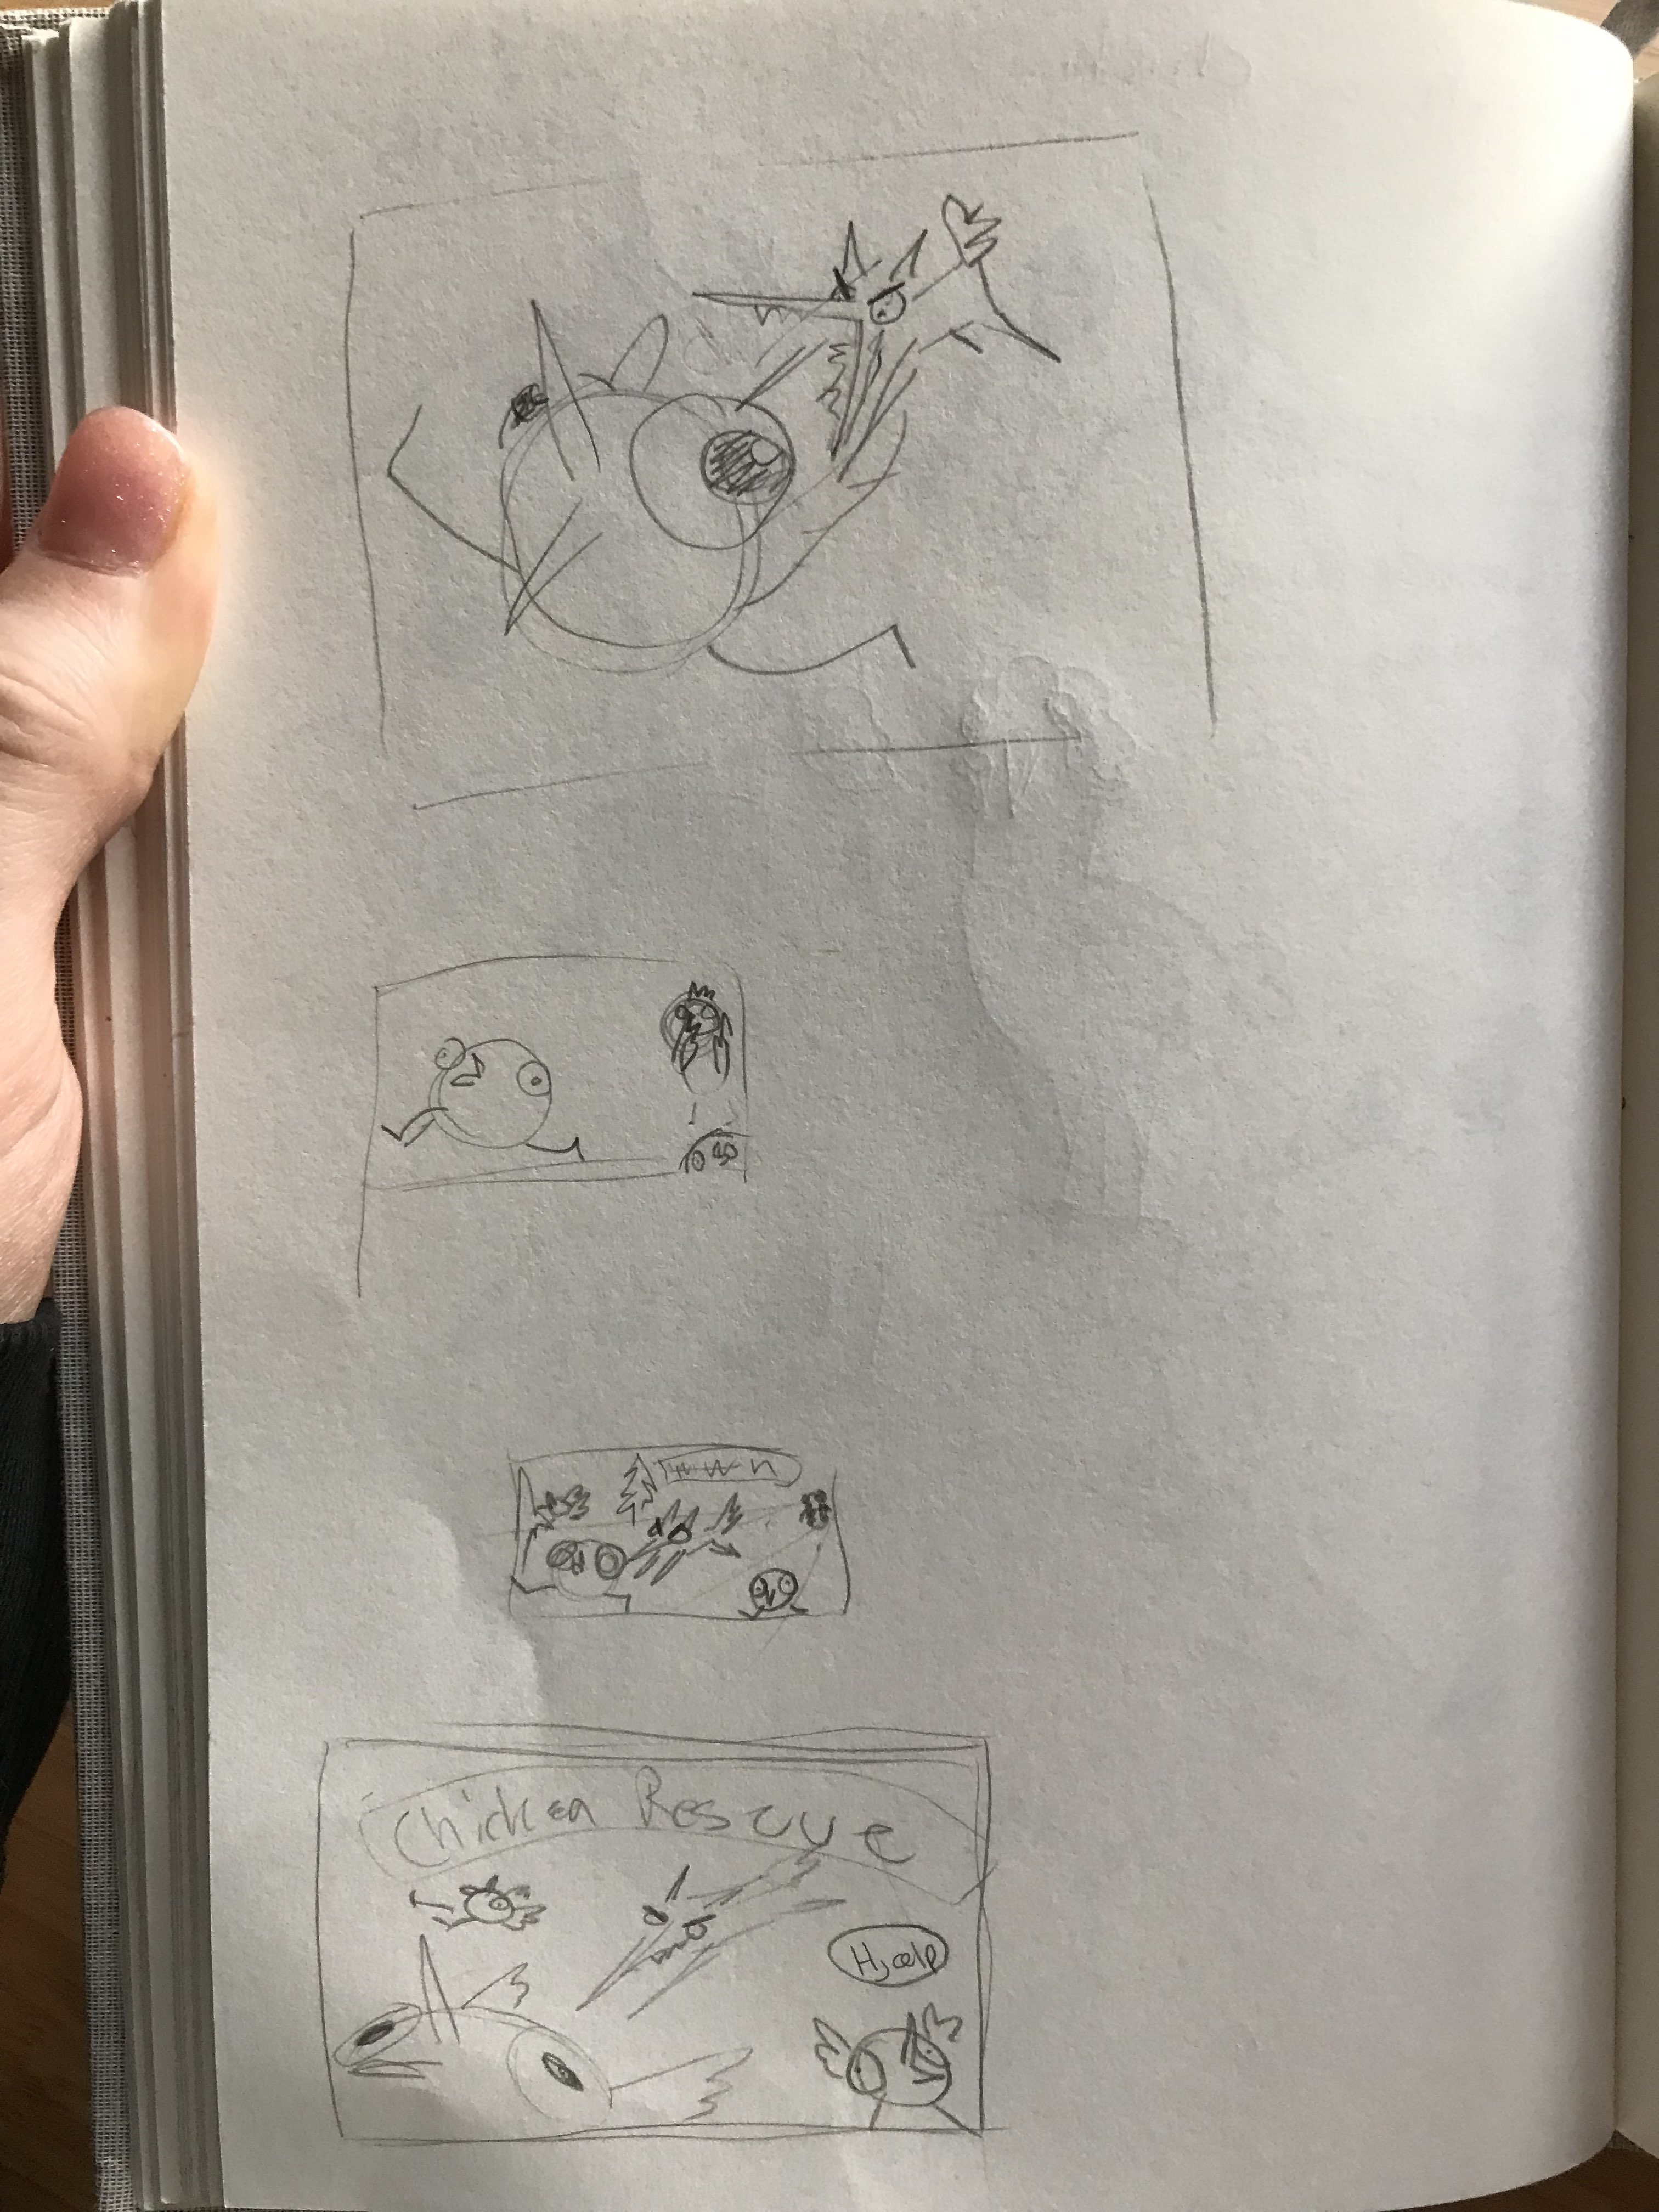 Chicken Rescue
Hjælp